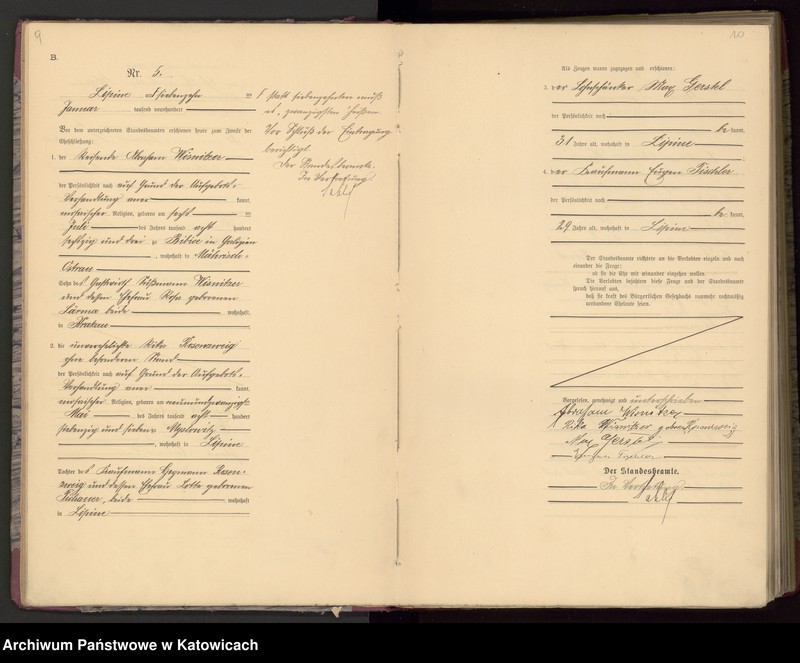 9
B.
Nr. 5.
Lipine, am siebenzehn ten
Januar tausend neunhundert
Vor dem unterzeichneten Standesbeamten erschienen heute zum Zwecke der
Eheschließung:
1. der Reisende Abraham Wisnitzer
der Persönlichkeit nach auf Grund der Aufgebots-
Verhandlung aner kannt,
mosaischer Religion, geboren am sechs ten
Juli des Jahres tausend acht hundert
sechzig und drei zu in Galizien
, wohnhaft in Mährisch-
Ostrau
Sohn des Gastwirth Wisnitzer
und dessen Ehefrau Rosa geborenen
beide wohnhaft
in Krakau
2. die unverehelichte Rika Rosenzweig
ohne besonderen Stand
der Persönlichkeit nach auf Grund der Aufgebots-
Verhandlung aner kannt,
mosaischer Religion, geboren am neunundzwanzigst
Mai des Jahres tausend acht hundert
siebenzig und sieben zu Myslowitz
, wohnhaft in Lipine
Tochter des Kaufmann Rosen-
zweig und dessen Ehefrau Lotte geborenen
beide wohnhaft
in Lipine
statt siebenzehnten muß
es, zwanzigsten heißen.
Vor Schluß der Eintragung
berichtigt.
Der Standesbeamte.
In Vertretung
10
Als Zeugen waren zugezogen und erschienen:
3. der Schankwirth Max Gerstel
der Persönlichkeit nach
be kannt,
31 Jahre alt, wohnhaft in Lipine
4. der Kaufmann Eugen Tischler
der Persönlichkeit nach
be kannt,
29 Jahre alt, wohnhaft in Lipine
Der Standesbeamte richtete an die Verlobten einzeln und nach
einander die Frage:
ob sie die Ehe mit einander eingehen wollen.
Die Verlobten bejahten diese Frage und der Standesbeamte
sprach hierauf aus,
daß sie kraft des Bürgerlichen Gesetzbuchs nunmehr rechtmäßig
verbundene Eheleute seien.
Vorgelesen, genehmigt und unterschrieben
Abraham Wisnitzer
Rika Wisnitzer geborene Rosenzweig
Max Gerstel
Eugen Tischler
Der Standesbeamte.
In Vertretung
Archiwum Państwowe w Katowicach